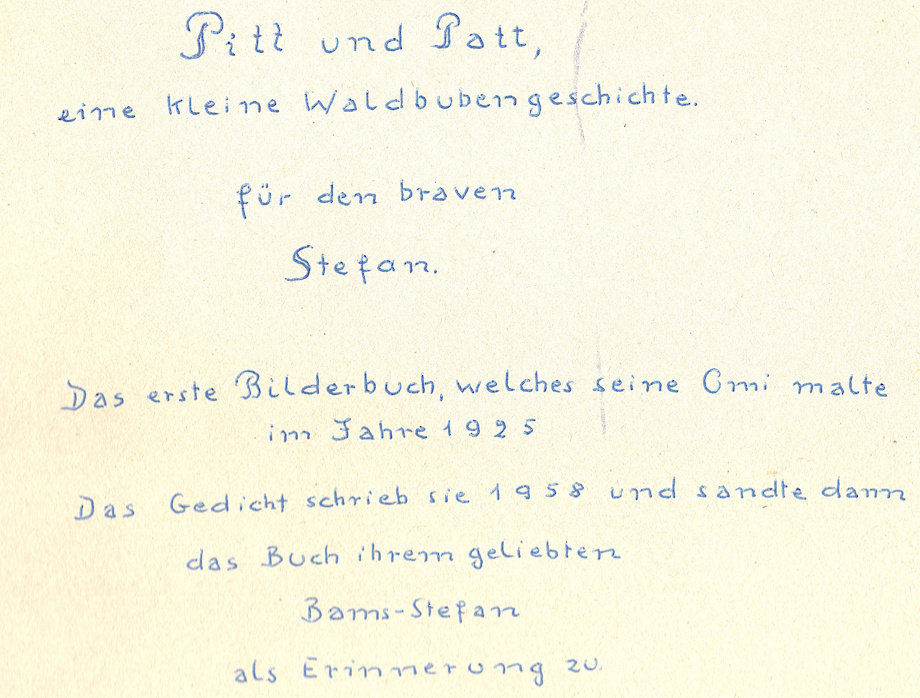 Pitt und Patt,
eine kleine Waldbubengeschichte.
für den braven
Stefan.
Das erste Bilderbuch, welches seine Omi malte
im Jahre 1925
Das Gedicht schrieb sie 1958 und sandte dann
das Buch ihrem geliebten
Bams-Stefan
als Erinnerung zu.